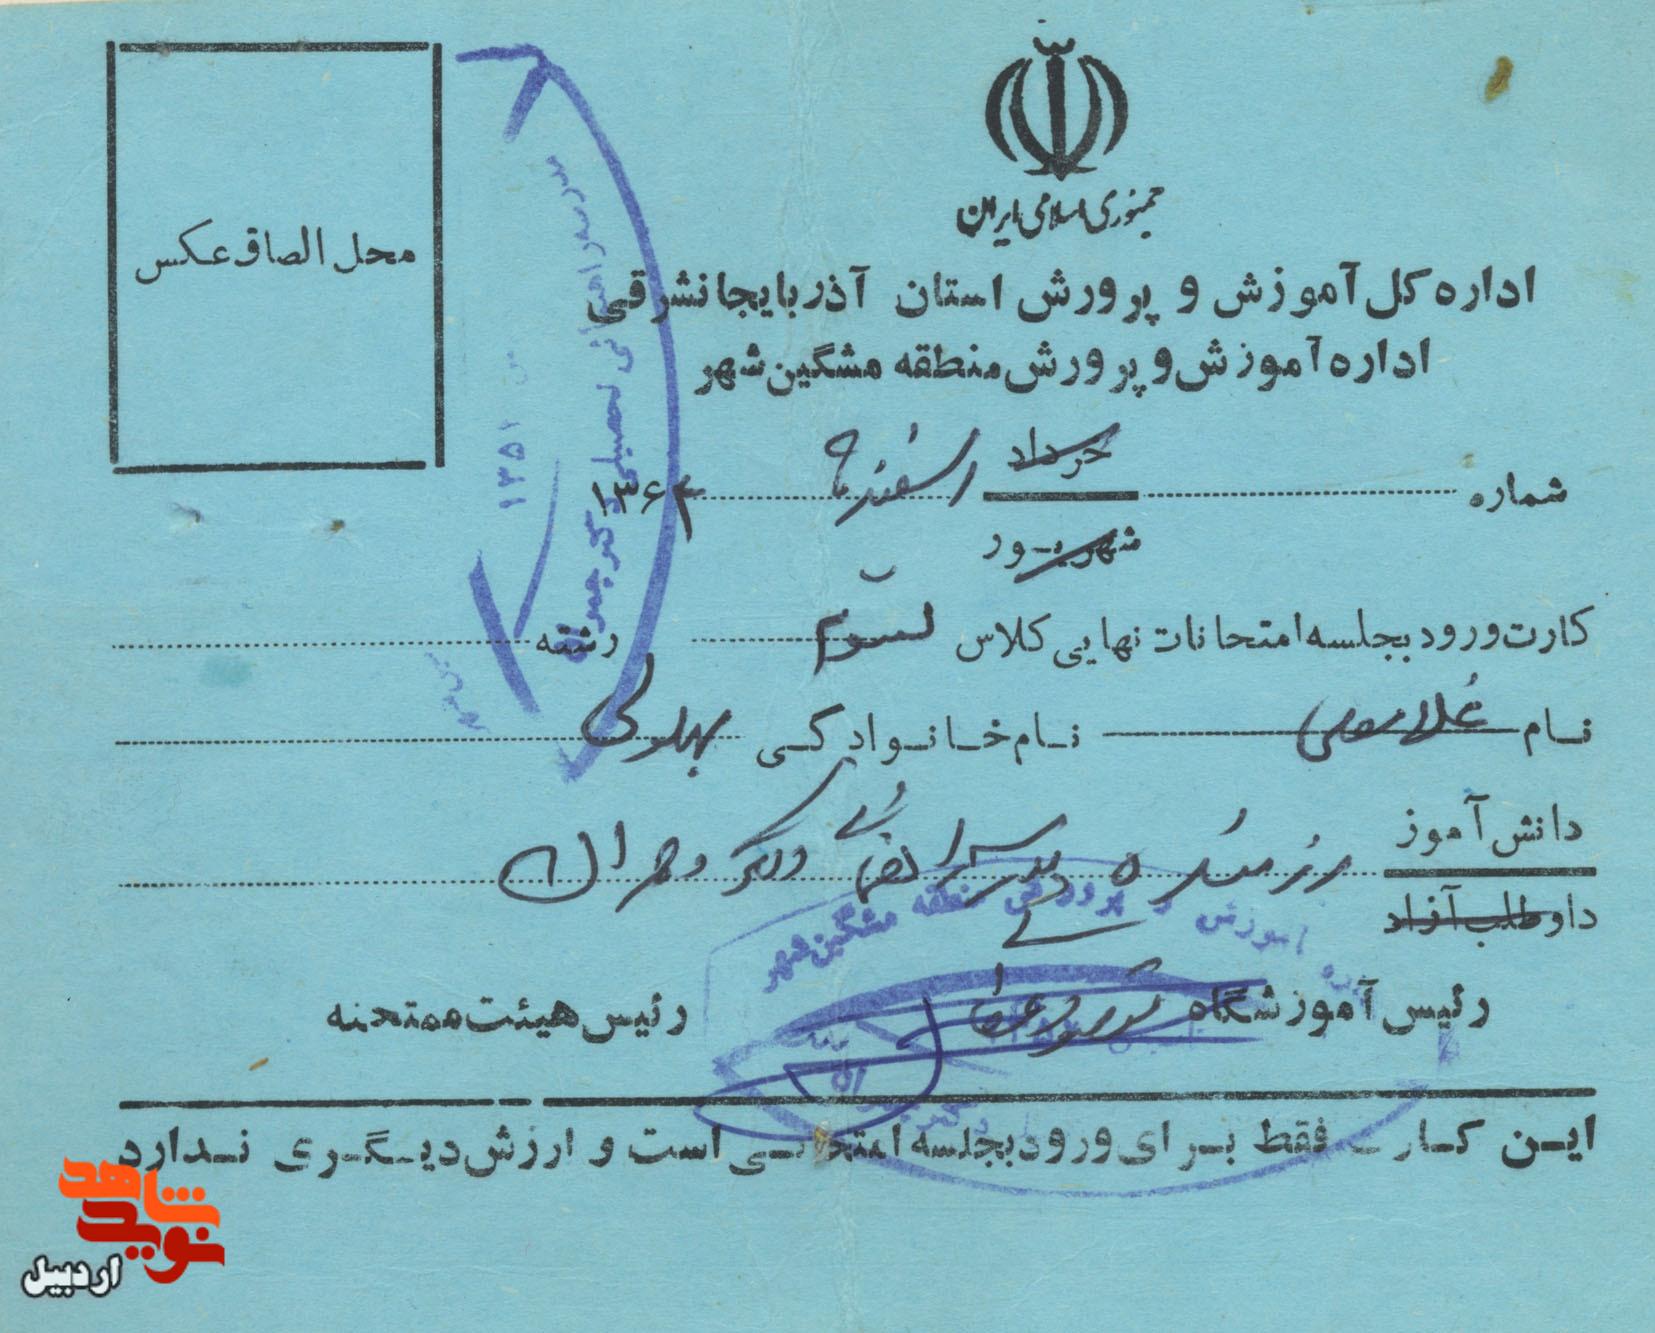 جمهوری اسلامی ایران
اداره کل آموزش و پرورش استان آذربایجانشرقی
اداره آموزش و پرورش منطقه مشگین شهر
محل الصاق عکس
خرداد
شماره اسفند ماه ۱۳۶۴
شهریور
کارت ورود بجلسه امتحانات نهایی کلاس سوم رشته
نام نام خانوادگی بهلولی
دانش آموز
رزمنده دکتر چمران
داوطلب آزاد
رئیس آموزشگاه رئیس هیئت ممتحنه
این کارت فقط برای ورود بجلسه امتحانی است و ارزش دیگری ندارد
مدرسه راهنمائی تحصیلی دکتر چمران
۱۳۵۱
آموزش و پرورش منطقه مشگین شهر
نوید شاهد
اردبیل